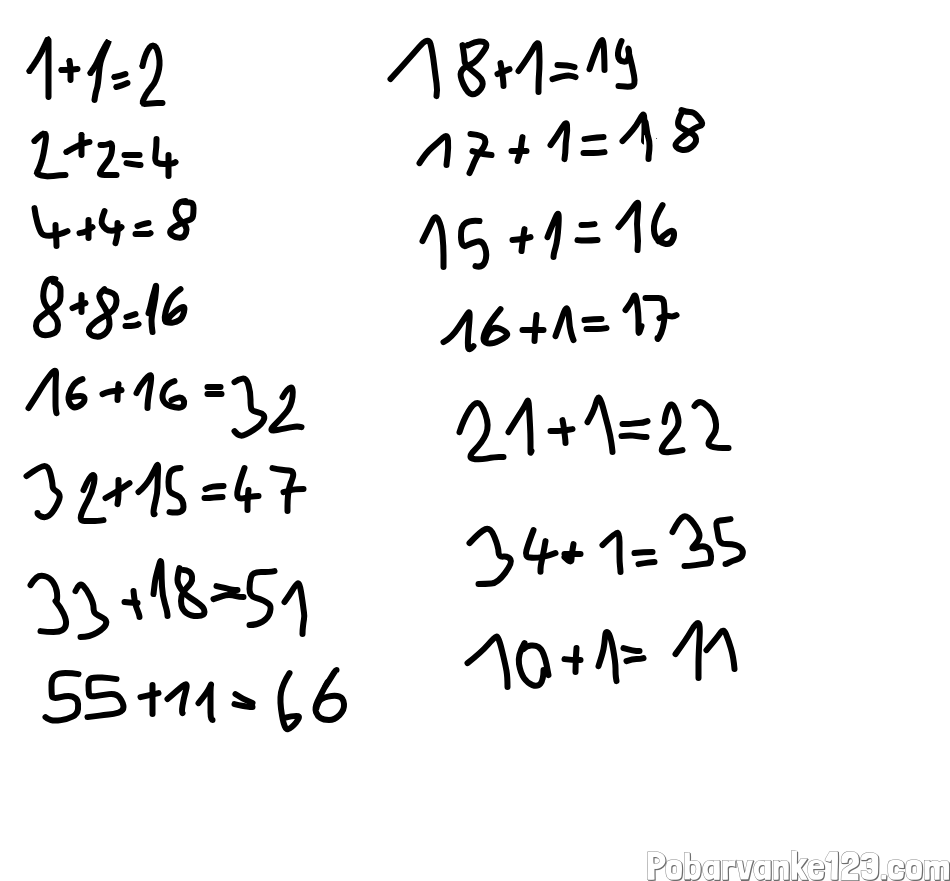 1+1=2
2+2=4
4+4=8
8+8=16
16+16=32
32+15=47
33+18=51
55+11=66
18+1=19
17+1=18
15+1=16
16+1=17
21+1=22
34+1=35
10+1=11
Pobarvanke123.com